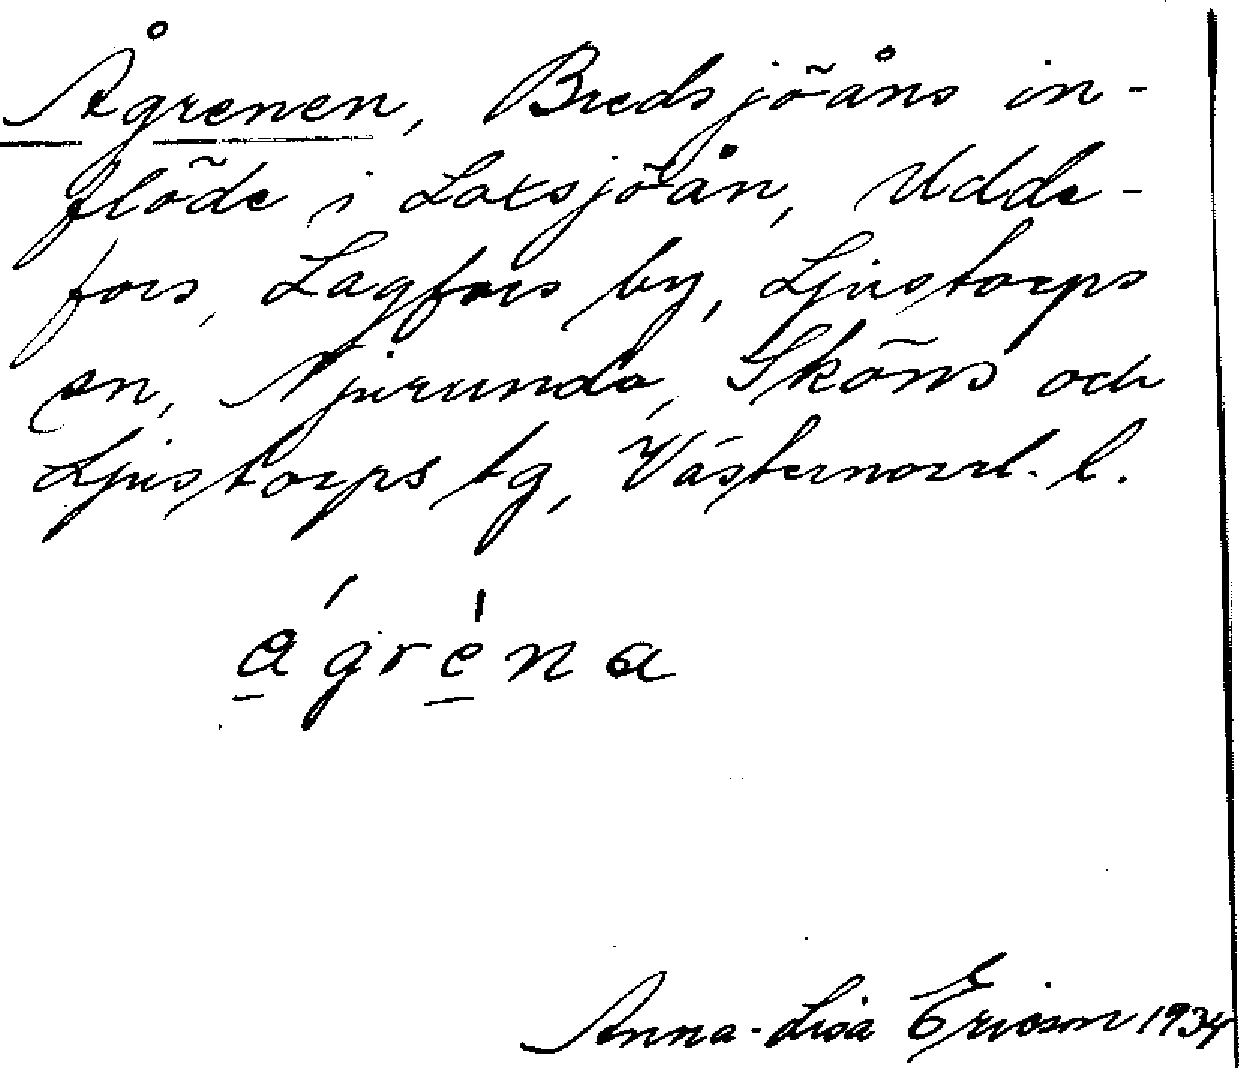 Ågrenen, Bredsjöåns in-
flöde i Laxsjöån, Udde-
fors, Lagfors by, Ljustorps
sn, Njurunda, Sköns och
Ljustorps tg, Västernorrl. l.
ágréna
Anna-Lisa Ericson 1934